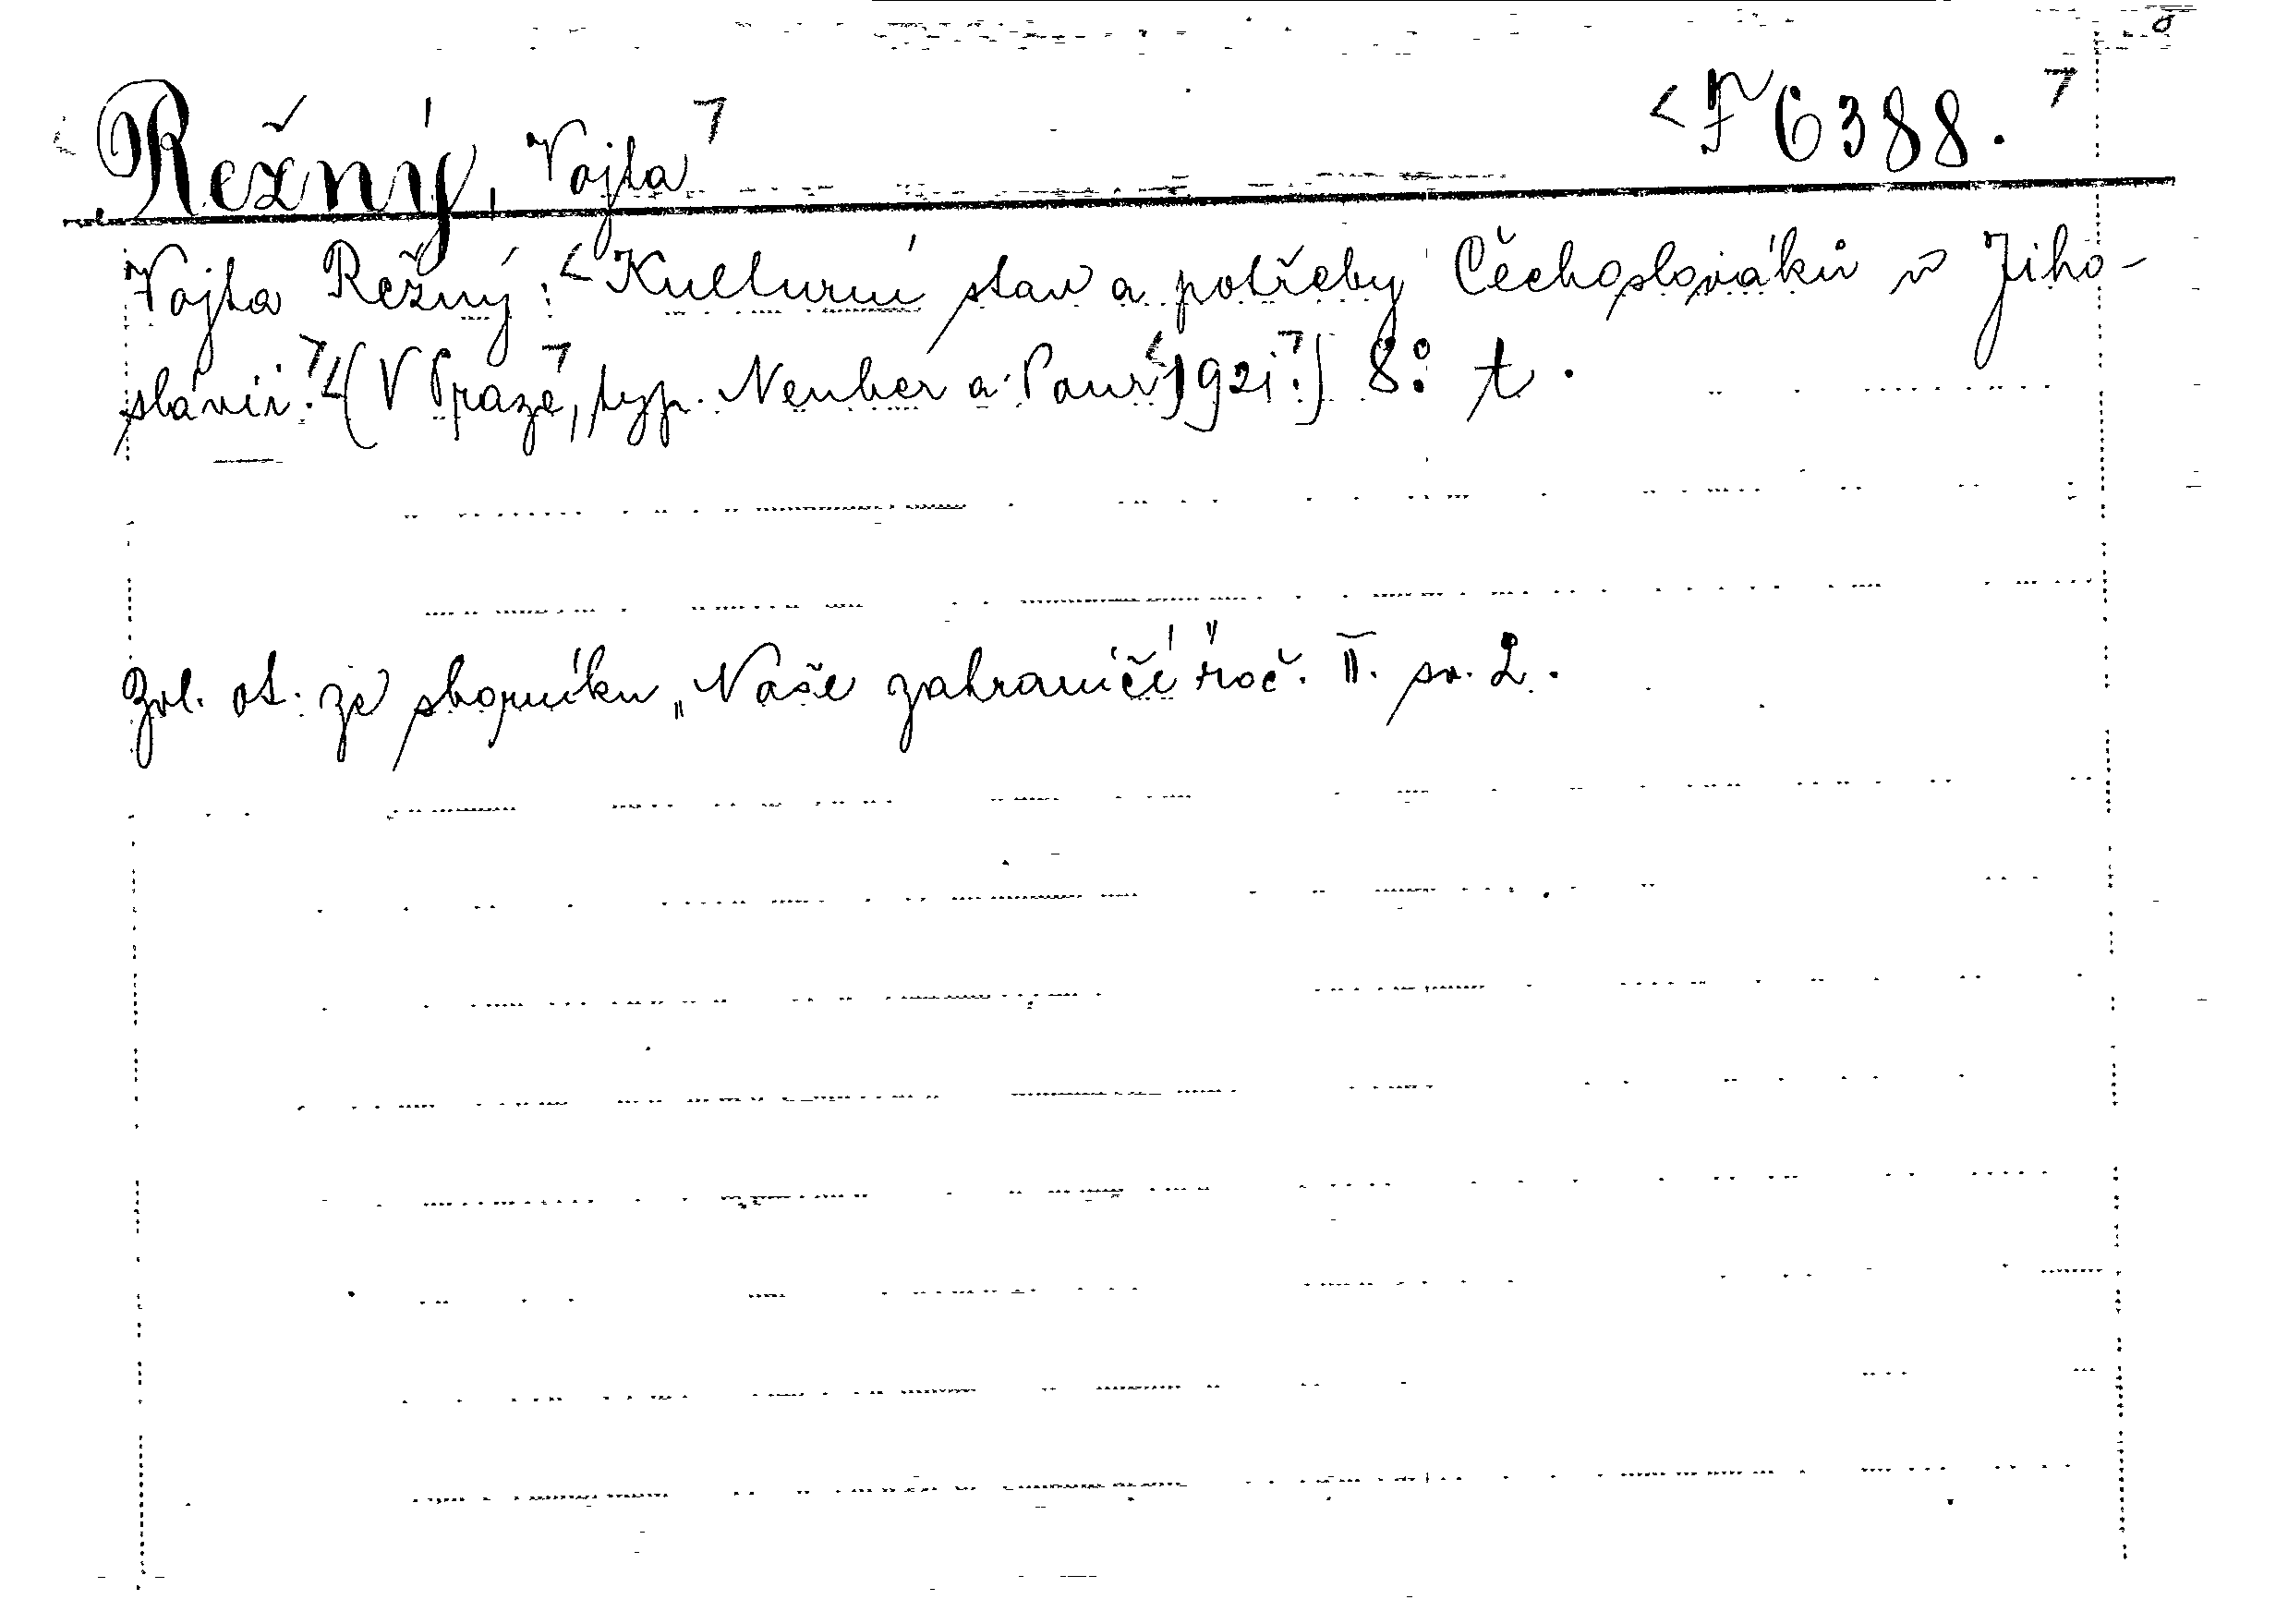 Režný, Vojta F 6388.
Vojta Režný: Kulturní stav a potřeby Čechoslováků v Jiho-
slávii. (V Praze, typ. Neuber a Pour 1921.) 8° t.
Zvl. ot. ze sborníku „Naše zahraničí" roč. II. sv. 2.